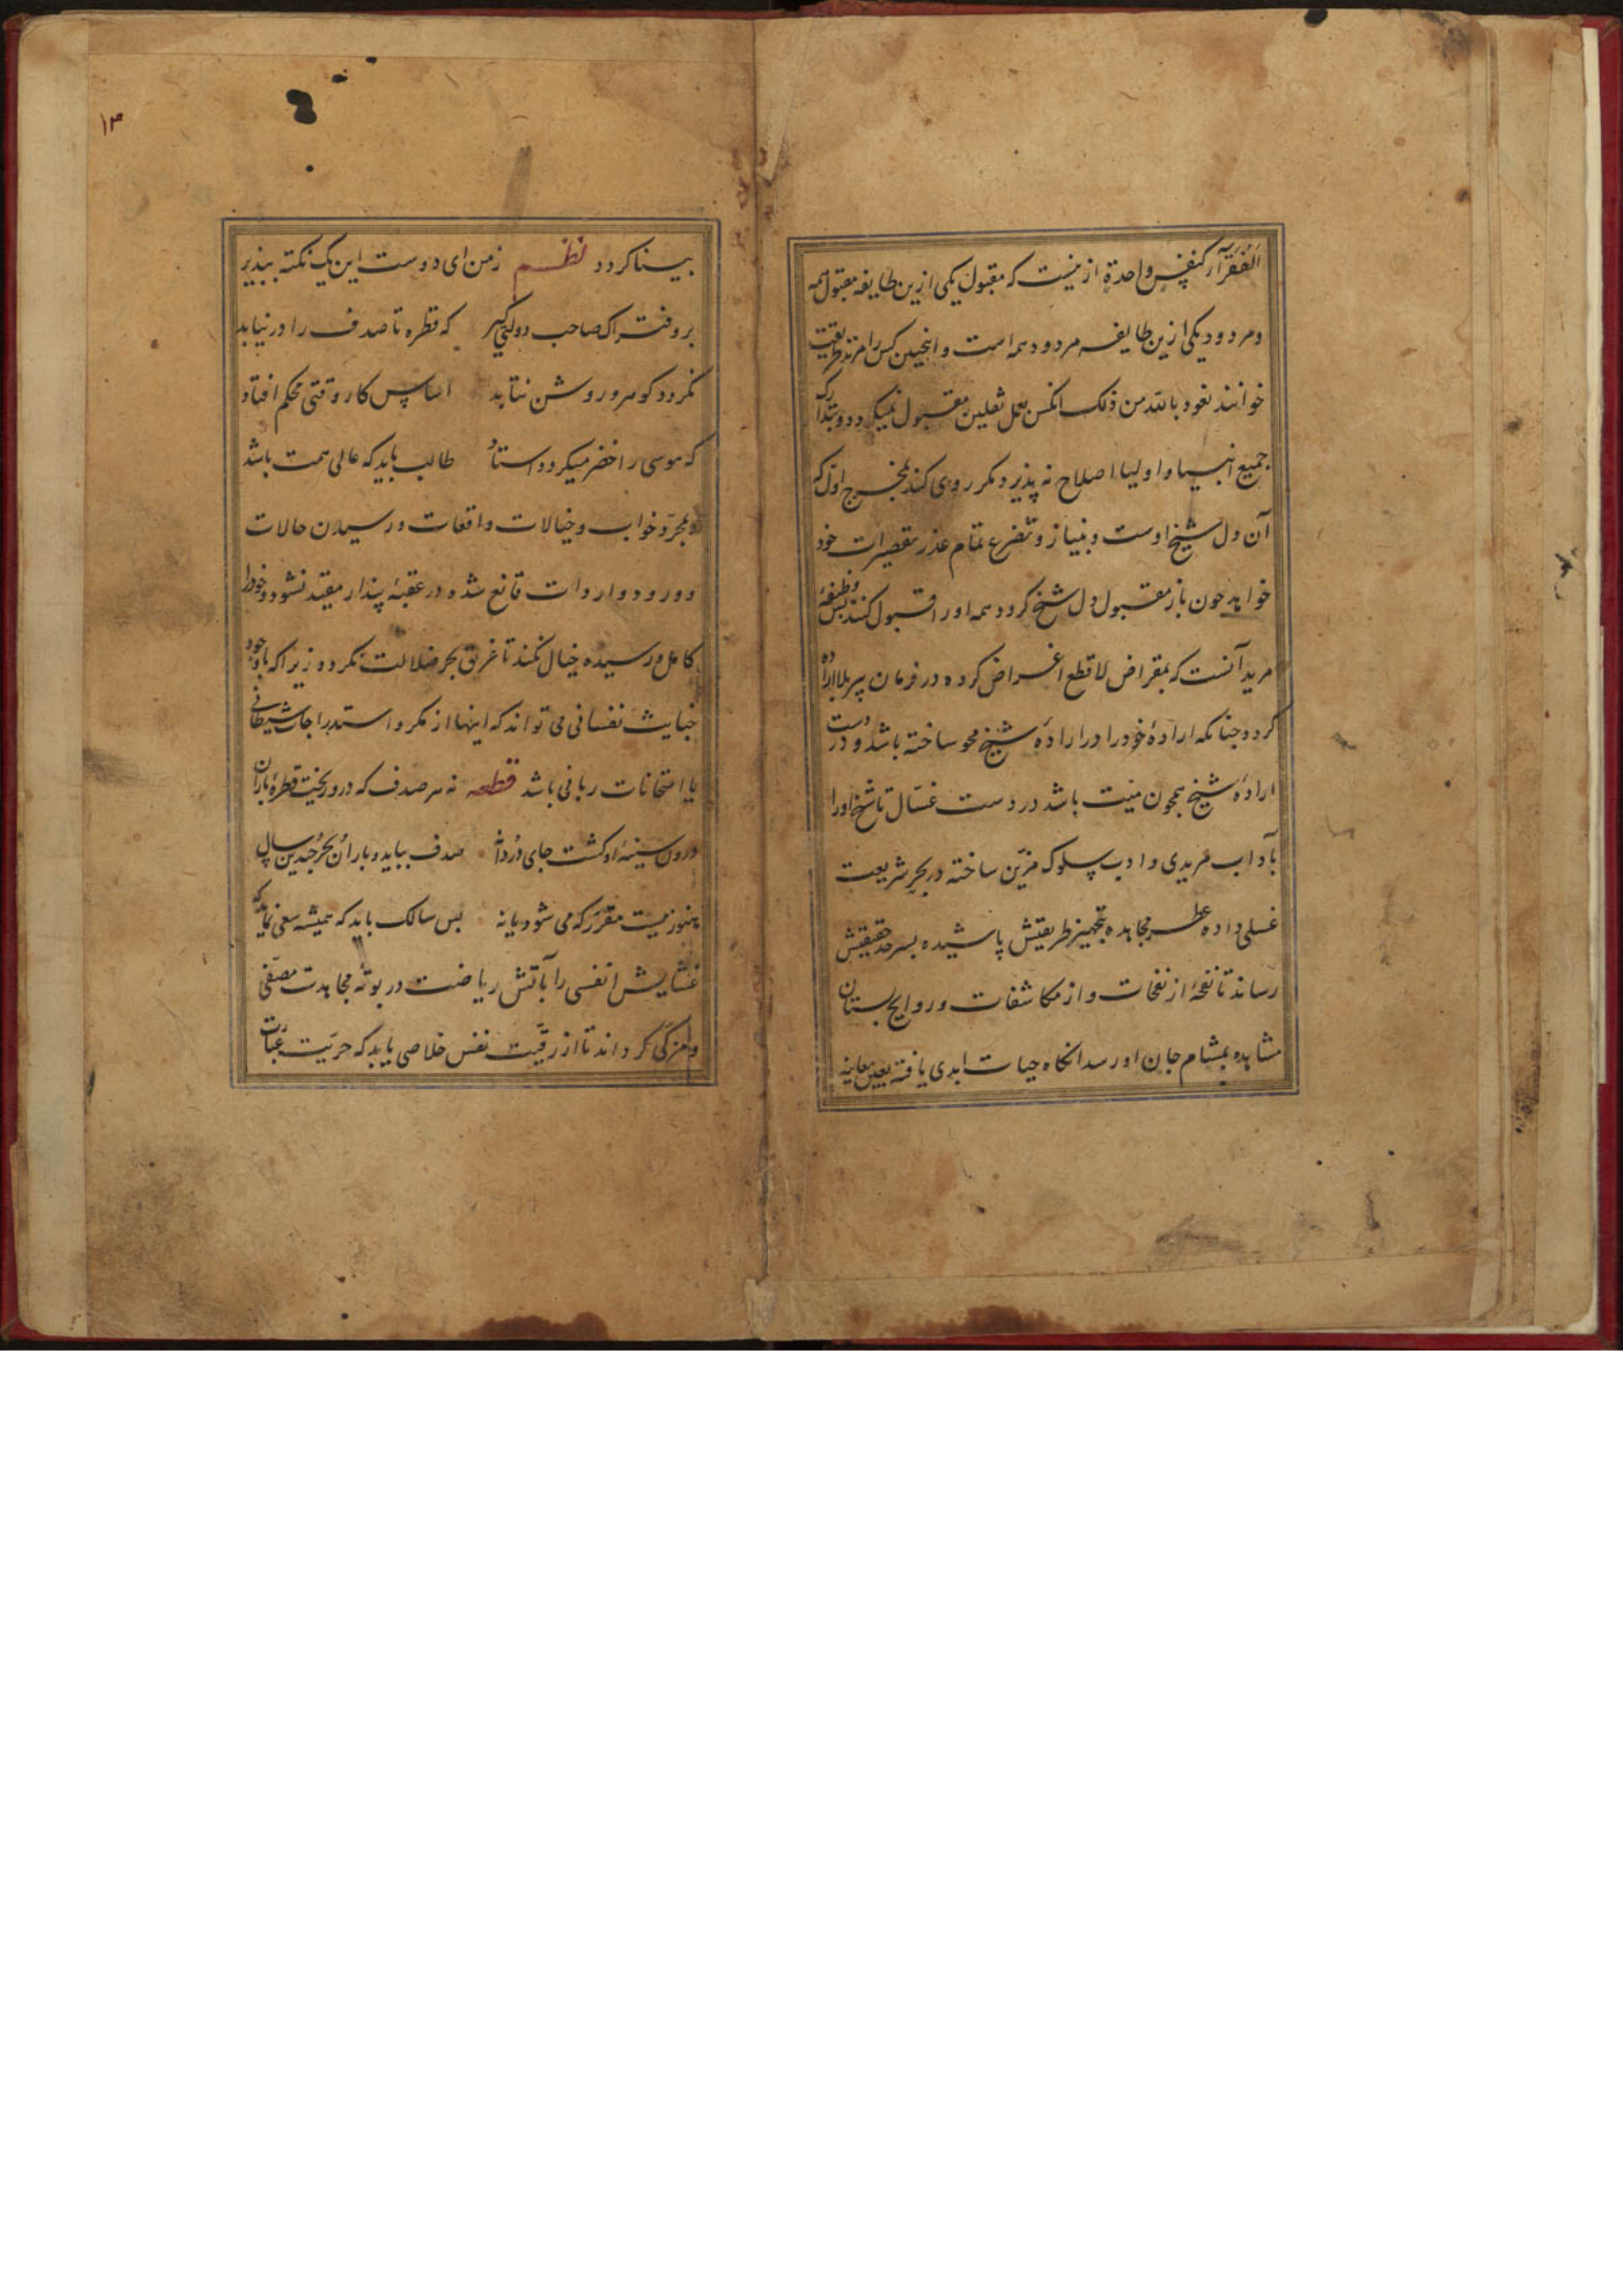 الفقرآء کنفس واحدة ازینست که مقبول یکی ازین طایفه مقبول همه
و مردود یکی ازین طایفه مردود همه است و اینچنین کس را مرتد طریقت
خوانند نعوذ بالله من ذلک انکس بعمل ثقلین مقبول نمیکردد و بتدارک
جمیع انبیا و اولیا اصلاح نه پذیرد مکر روی کند بمخرج اول که
آن دل شیخ اوست و بنیاز و تضرع تمام عذر تقصیرات خود
خواهد چون باز مقبول دل شیخ کردد همه او را قبول کنند پس وظیفهٔ
مرید آنست که بمقراض لا قطع اغراض کرده در فرمان پیر بلا اراده
کردد چنانکه ارادهٔ خود را در ارادهٔ شیخ محو ساخته باشد و در دست
ارادهٔ شیخ همچون میّت باشد در دست غسّال تا شیخ او را
بآداب مریدی و ادب سلوک مزیّن ساخته در بحر شریعت
غسلی داده عطر مجاهده بتجهیز طریقتش پاشیده بسرحد حقیقتش
رساند تا نفحهٔ از نفحات و از مکاشفات و روایح بستان
مشاهده بمشام جان او رسد انکاه حیات ابدی یافته بعین معاینه
۱۳
بیناکردد نظم زمن ای دوست این یک نکته بپذیر
برو فتراک صاحب دولتی کیر که قطره تا صدف را در نیابد
نکردد کوهر و روشن نتابد اساس کار وقتی محکم افتاد
که موسی را خضر میکردد استاد طالب باید که عالی همت باشد
و بمجرّد خواب و خیالات و اقعات و رسیدن حالات
و ورود واردات قانع شده در عقبهٔ پندار مقید نشود و خود را
کامل و رسیده خیال نکند تا غریق بحر ضلالت نکردد زیرا که باوجود
خبایث نفسانی می تواند که اینها از مکر و استدراجات شیطانی
یا امتحانات ربانی باشد قطعه نه هر صدف که درو ریخت قطرهٔ باران
درون سینهٔ او کشت جای دُردانه صدف بباید و باران و بحر و چندین سال
هنوز نیست مقرّر که می شود یا نه پس سالک باید که همیشه سعی نماید که
غشایش انفسی را بآتش ریاضت در بوتهٔ مجاهدت مصفّی
و مزکّی کرداند تا از رقیّت نفس خلاصی یابد که حریّت عبارت